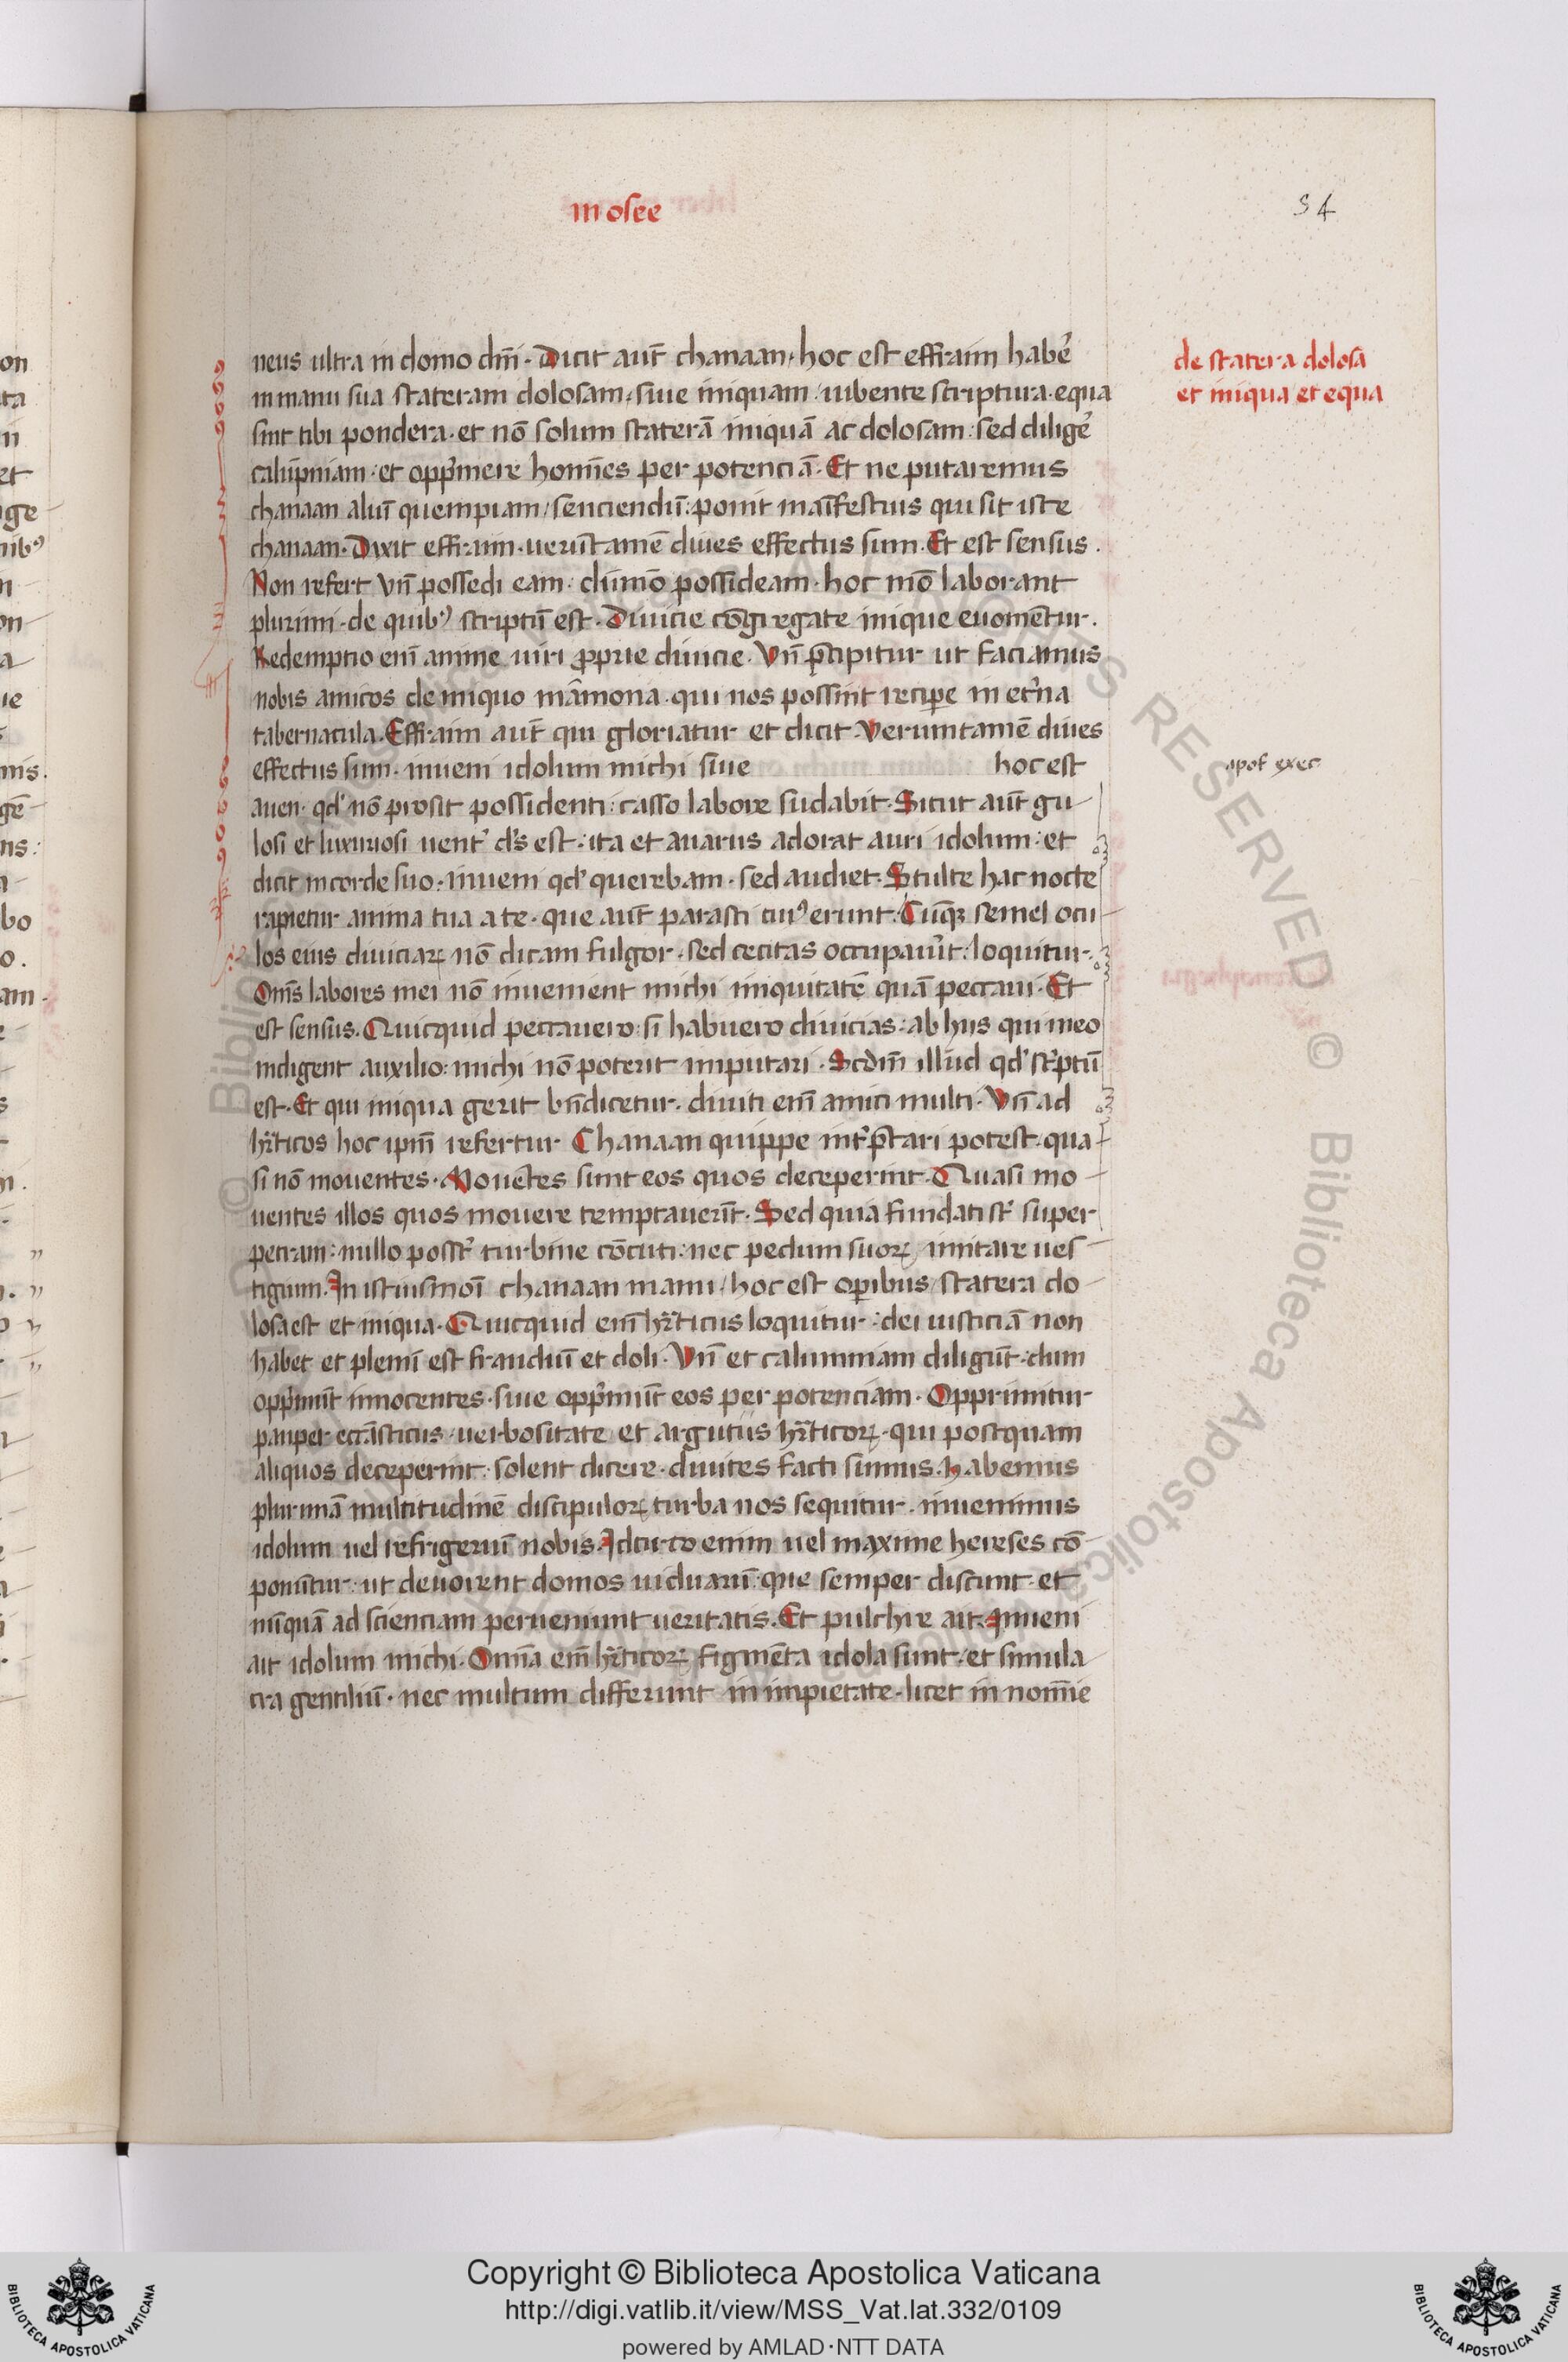 in osee
34
neus ultra in domo dnī. Dicit aut̄ chanaan, hoc est effraim haber̄
in manu sua stateram dolosam, siue iniquam iubente scriptura. equa
sint tibi pondera. et nō solum staterā iniquā ac dolosam: sed diliger̄
calūpniam. et opp̄mere homīes per potenciā. Et ne putaremus
chanaan aliuī quempiam, senciendū: ponit maīfestius qui sit iste
chanaan. Dixit effraim. uerūtamē diues effectus sum. Et est sensus.
Non refert vn̄ possedi eam: dūmō possideam. hoc mō laborant
plurimi. de quibꝰ scriptū est. Diuicie cōgregate inique euomētur.
Redemptio enī anime uiri ꝓprie diuicie. Vn̄ p̄cipitur ut faciamus
nobis amicos de iniquo māmona. qui nos possint recipe in et̄na
tabernacula. Effraim aut̄ qui gloriatur et dicit. verumtamē diues
effectus sum. inueni idolum michi siue hoc est
auen. qd' nō prosit possidenti: casso labore sudabit. Sicut aut̄ gu
losi et luxuriosi uent̄ ds̄ est: ita et auarus adorat auri idolum: et
dicit in corde suo. inueni qd' querebam. sed audiet. Stulte hac nocte
rapietur anima tua a te. que aut̄ parasti cuiꝰ erunt. Cūqꝫ semel ocu
los eius diuiciaꝝ nō dicam fulgor. sed cecitas occupauīt: loquitur.
Omīs labores mei nō inuenient michi iniquitatē quā peccaui. Et
est sensus. Quicquid peccauero: si habuero diuicias: ab hijs qui meo
indigent auxilio: michi nō poterit imputari. Scdm̄ illud qd' sc̄ptū
est. Et qui iniqua gerit bn̄dicetur. diuiti enī amici multi. Vn̄ ad
hr̄ticos hoc ipm̄ refertur. Chanaan quippe int̄p̄tari potest. qua
si nō mouentes. Mouētes sunt eos quos deceperint. Quasi mo
uentes illos quos mouere temptauerīt. Sed quia fundati st̄ super
petram: nullo poss̄t turbine cōcuti: nec pedum suoꝝ imitare ues
tigium. In istiusmoī chanaan manu, hoc est oꝑibus statera do
losa est et iniqua. Quicquid enī hr̄ticus loquitur: dei iusticiā non
habet et plenū est fraudiū et doli. Vn̄ et calumniam diligūt: dum
opp̄munt innocentes. siue opp̄munt eos per potenciam. Opprimitur
pauper eccāsticus uerbositate et argutiis hr̄ticoꝝ. qui postquam
aliquos deceperint: solent dicere. diuites facti sumus. habemus
plurimā multitudinē discipuloꝝ turba nos sequitur. inuenimus
idolum uel refrigeriū nobis. Idcirco enim uel maxime hereses cō
ponūtur: ut deuorent domos uiduarū: que semper discunt. et
nūquā ad scienciam perueniunt ueritatis. Et pulchre ait. Inueni
ait idolum michi. Omīa enī hr̄ticoꝝ figmēta idola sunt. et simula
cra gentiliū. nec multum differunt in impietate. licet in nomīe
de statera dolosa
et iniqua et equa
Copyright © Biblioteca Apostolica Vaticana
http://digi.vatlib.it/view/MSS_Vat.lat.332/0109
powered by AMLAD·NTT DATA
BIBLIOTECA APOSTOLICA VATICANA
BIBLIOTECA APOSTOLICA VATICANA